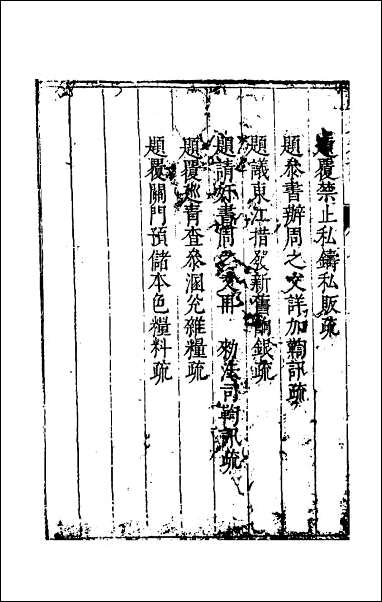 題覆禁止私鑄私販疏
題參書辦周之文詳加鞫訊疏
題議東江措發新舊餉銀疏
題請奸書周之文再 勑法司鞫訊疏
題覆巡青查參溷兌雜糧疏
題覆關門預儲本色糧料疏